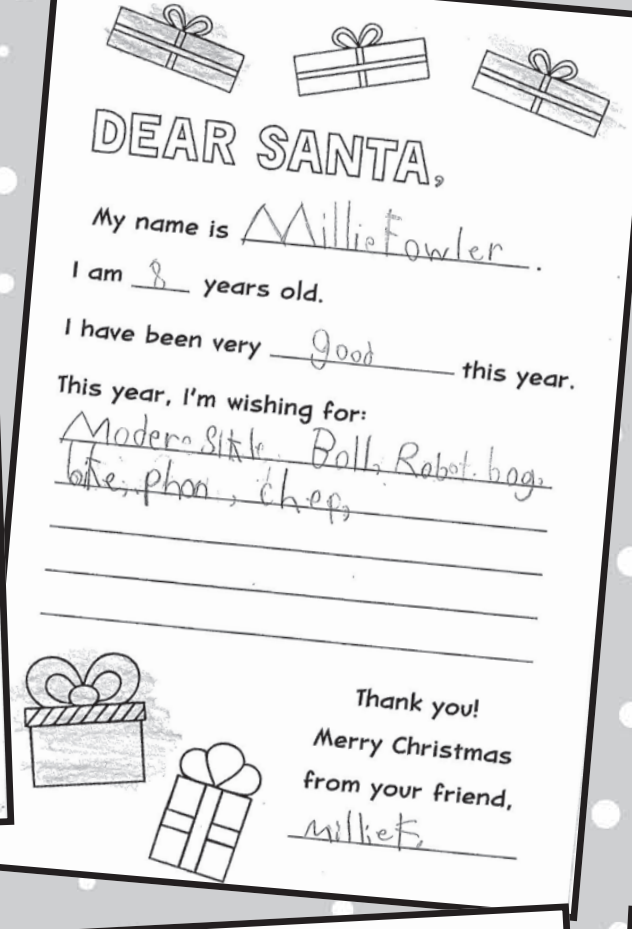 DEAR SANTA,
My name is Millie Fowler.
I am 8 years old.
I have been very good this year.
This year, I'm wishing for:
Modern Boll, Robot. bag,
bike, phon, chep,
Thank you!
Merry Christmas
from your friend,
Millie F.